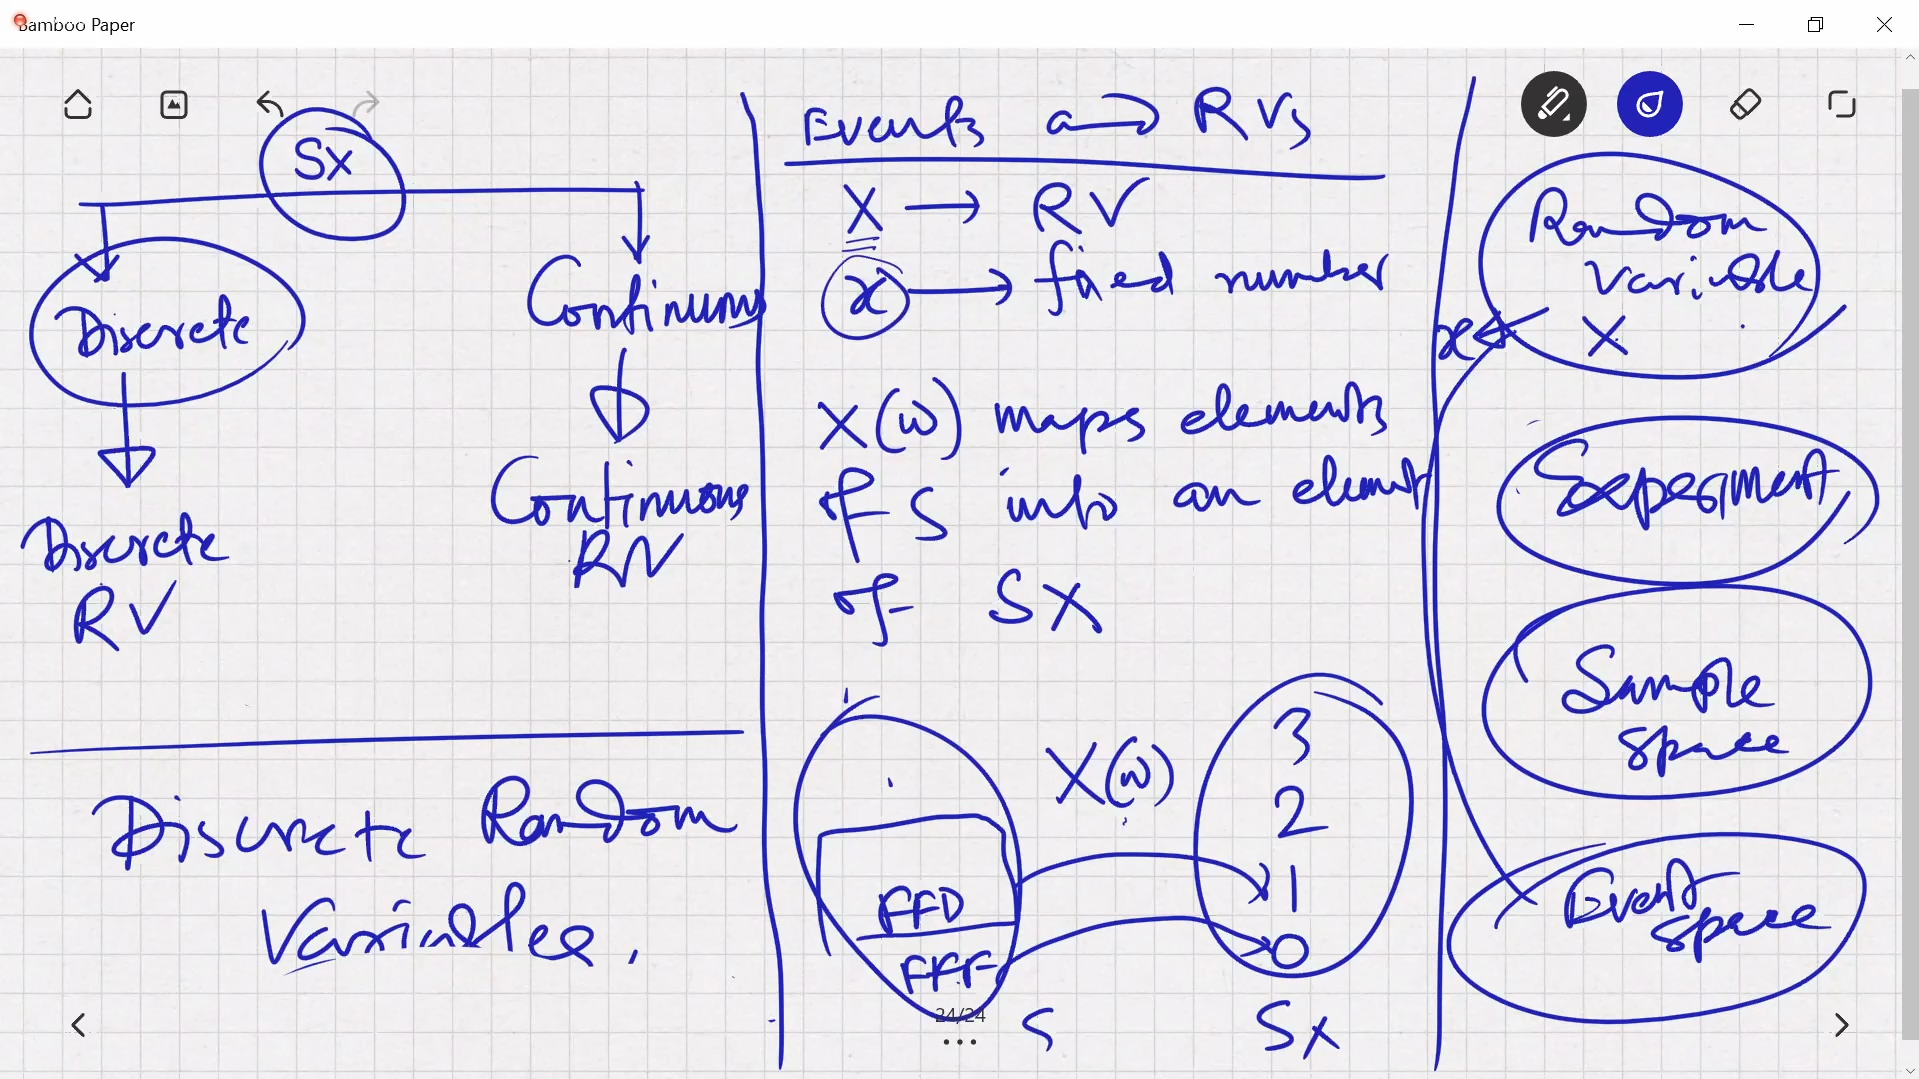 Bamboo Paper
SX
Discrete
Continuous
Discrete
RV
Continuous
RV
Discrete Random
Variables.
Events → RVs
X → RV
x → fixed number
X(ω) maps elements
of S into an element
of SX
X(ω)
3
2
1
0
FFD
FFF
S
SX
24/24
Random
Variable
X
x
Experiment
Sample
Space
Event
Space